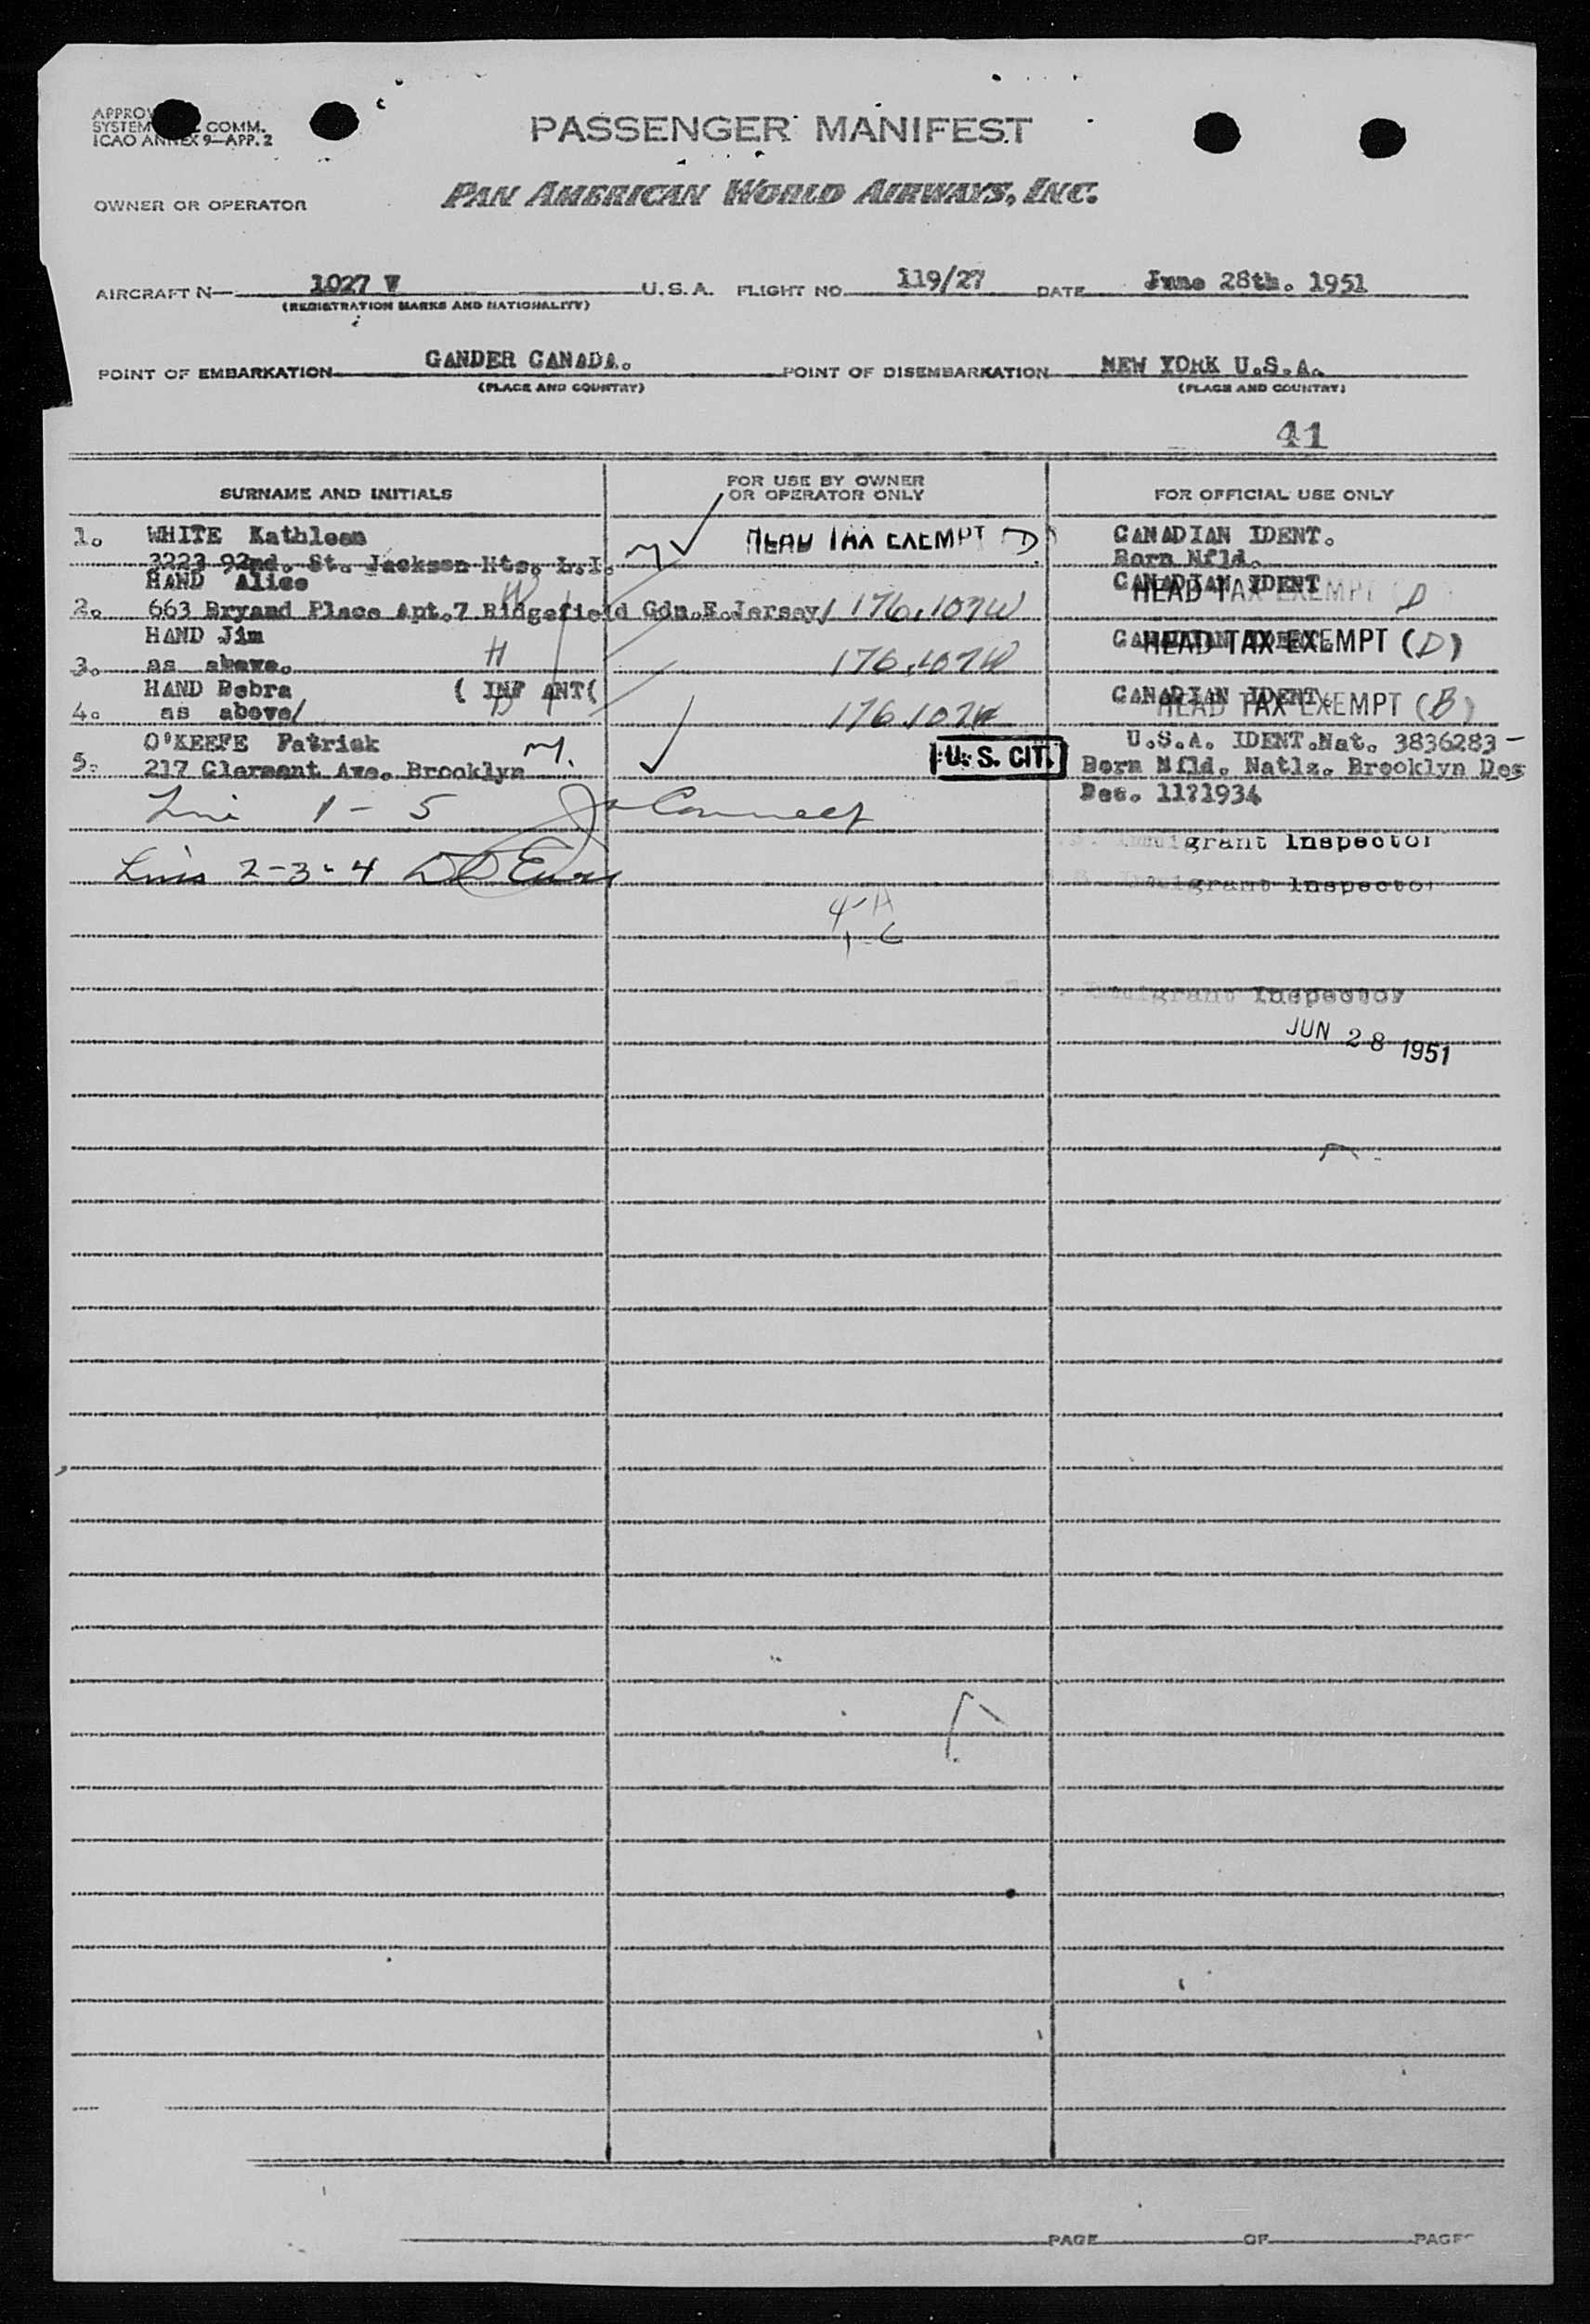 PASSENGER MANIFEST
COMM.
ICAO ANNEX 9—APP. 2
OWNER OR OPERATOR
PAN AMERICAN WORLD AIRWAYS, INC.
AIRCRAFT N— 1027 V U.S.A. FLIGHT NO. 119/27 DATE June 28th. 1951
(REGISTRATION MARKS AND NATIONALITY)
POINT OF EMBARKATION GANDER CANADA. POINT OF DISEMBARKATION NEW YORK U.S.A.
(PLACE AND COUNTRY) (PLACE AND COUNTRY)
41
SURNAME AND INITIALS FOR USE BY OWNER OR OPERATOR ONLY FOR OFFICIAL USE ONLY
1. WHITE Kathleen HEAD TAX EXEMPT D CANADIAN IDENT.
3223 92nd. St. Jackson Hts. L.I. Born Nfld.
HAND Alice CANADIAN IDENT
HEAD TAX EXEMPT D
2. 663 Bryand Place Apt.7 Ridgefield Gdn.E.Jersey/ 176.107W
HAND Jim HEAD TAX EXEMPT (D)
3. as above. H 176.107W
HAND Debra ( INF ANT( CANADIAN IDENT.
HEAD TAX EXEMPT (B)
4. as above/ 176.107
O'KEEFE Patrick U.S.A. IDENT.Nat. 3836283—
5. 217 Clermont Ave. Brooklyn U.S. CIT. Born Nfld. Natlz. Brooklyn Des
Dec. 11?1934
1 - 5
2-3-4
Immigrant Inspector
Immigrant Inspector
4-A
1-C
Immigrant Inspector
JUN 28 1951
PAGE OF PAGES